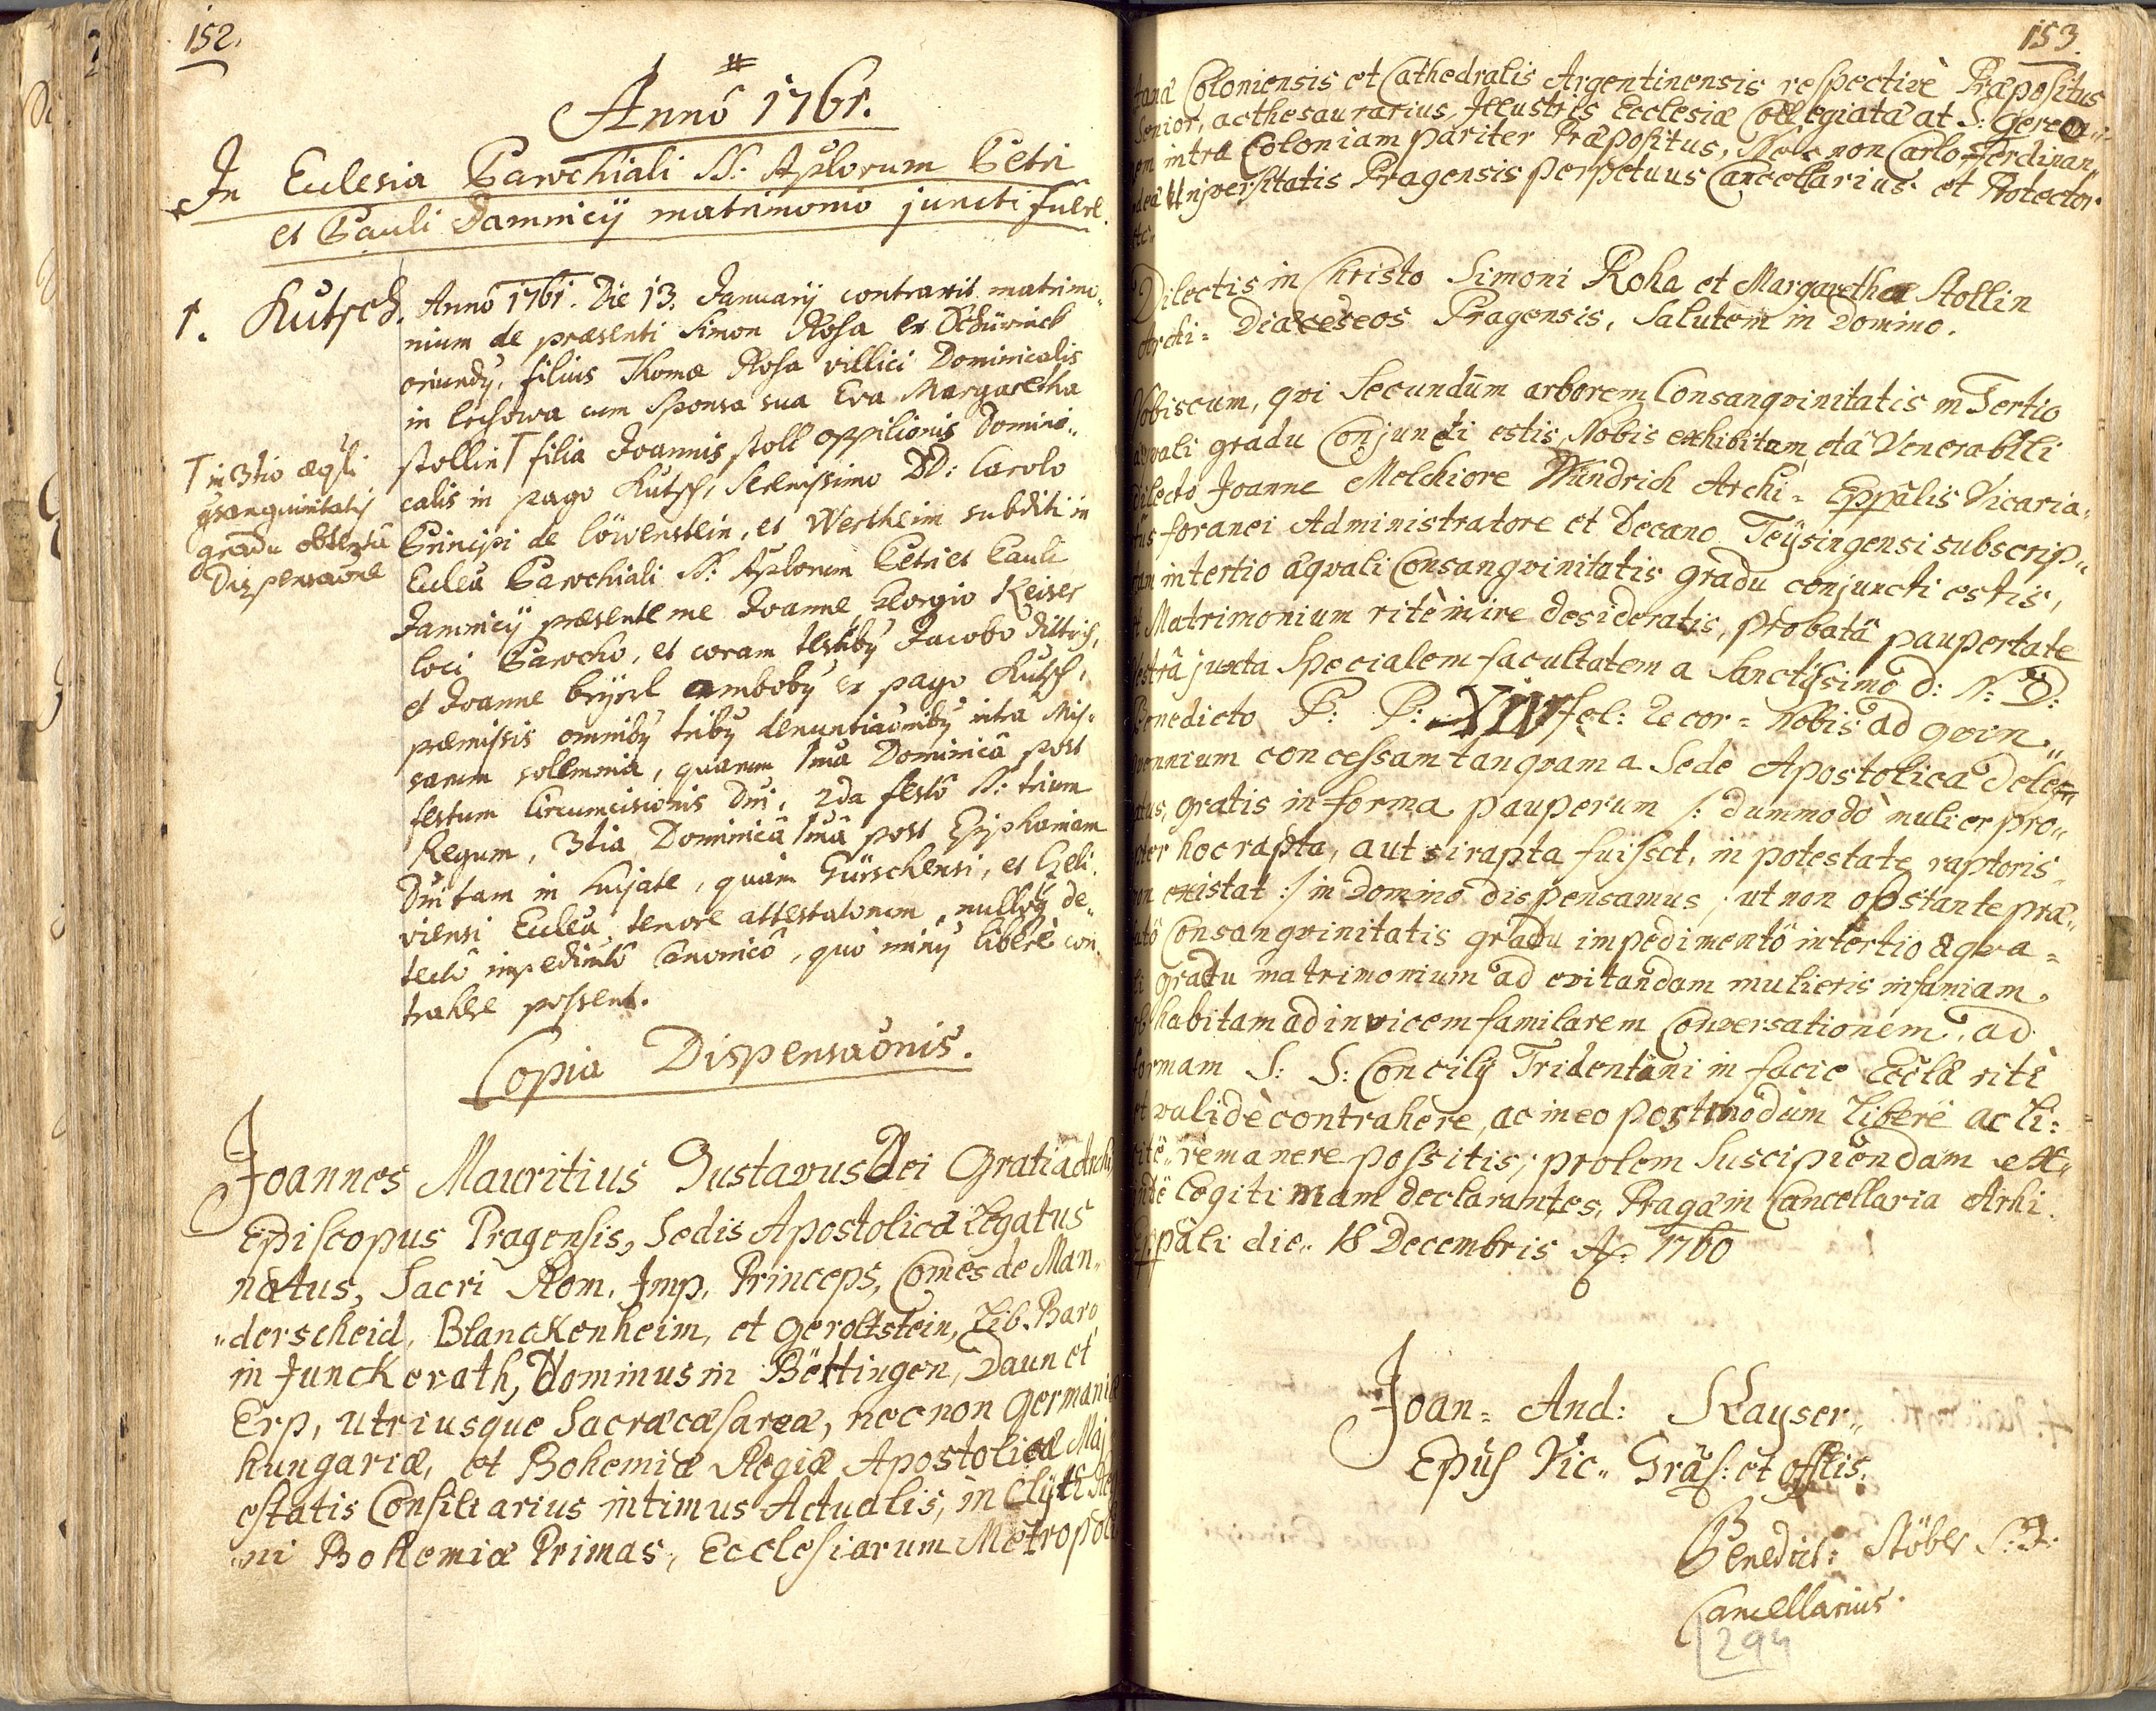 152.
#
Annô 1761.
In Eclesia Parochiali SS: Aplorum Petri
et Pauli Damnicij matrimonio juncti fuere.
1. Kutsch. Annô 1761. Die 13. Januarij contraxit matrimo-
nium de præsenti Simon Roha ex Schürineb
oriundy, filius Thomæ Roha villici Dominicalis
in lechowa cum Sponsa sua Eva Margaretha
stollin T filia Joannis stoll oppilionis Domini-
calis in pago Kutsch, Serenissimo DD: Carolo
Principi de löwenstein, et Wertheim subditi in
Ecclea Parochiali SS: Aplorum Petri et Pauli
Damnicij præsente me Joanne Georgio Keiser
loci Parocho, et coram testiby Jacobo dittrich,
et Joanne beysel amboby ex pago Kutsch,
præmissis omniby triby denuntiaoniby intra Mis-
sarum sollemnia, quarum 1ma Dominicâ post
festum Circumcisionis Dni, 2da festo SS: trium
Regum, 3tia Dominicâ 1mâ post Epiphaniam
Dni tam in hujate, quàm Gürschensi, et Geli-
viensi Ecclea, tenore attestatorum, nulloq de-
tectô impedimtô Canonicô, quô miny libere con-
trahere possent.
T in 3tio æqli
gsanguinitatis
gradu obtenta
Dispensaone
Copia Dispensaonis.
Joannes Mauritius Gustavus Dei Gratia Archi
Episcopus Pragensis, Sedis Apostolicæ Legatus
natus, Sacri Rom. Imp. Princeps, Comes de Man-
derscheid, Blanckenheim, et geroltstein, Lib. Baro
in Junckerath, Dominus in Bettingen, Daun et
Erp, utriusque Sacræ cæsareæ, nec non germaniæ
hungariæ, et Bohemiæ Regiæ Apostolicæ Maj
estatis Consiliarius intimus Actualis, in Clyti Reg
ni Bohemiæ Primas, Ecclesiarum Metropoli
153.
tanæ Coloniensis et Cathedralis Argentinensis respectivè Præpositus
Senior, ac thesaurarius, Illustris Ecclesiæ Collegiatæ at S: gereon-
em intra Coloniam pariter Præpositus, Nec non Carlo-Ferdinan-
deæ Universitatis Pragensis perpetuus Cancellarius et Protector
etc.
Dilectis in Christo Simoni Roha et Margarethæ Stollin
Archi= Diæceseos Pragensis, Salutem in Domino.
Vobiscum, qvi Secundum arborem Consangvinitatis in Tertio
æqvali gradu Conjuncti estis, Nobis exhibitam, et à Venerabili
Dilecto Joanne Melchiore Wundrich Archi= Eppâlis Vicaria-
tûs foranei Administratore et Decano Teysingensi subscrip-
tam in tertio æqvali Consangvinitatis gradu conjuncti estis,
et Matrimonium ritè inire desideratis, probatâ paupertate
vestrâ juxta Specialem facultatem a Sanctissimo D: N: D:
Benedicto P: P: XIV fel: recor= Nobis ad qvin-
qvennium concessam tanqvam a Sede Apostolica dele-
gatus, gratis in forma pauperum /: dummodò mulier pro-
pter hoc rapta, aut si rapta fuisset, in potestate raptoris
non existat :/ in Domino dispensamus, ut non obstante præ-
fatô Consangvinitatis gradu impedimentô in tertio æqva=
li gradu matrimonium ad evitandam mulieris infamiam,
ob habitam ad invicem familarem Conversationem, ad
formam S: S: Concilij Tridentini in facie Ecclæ ritè
et validè contrahere, ac in eo postmodum liberè ac li:
citè remanere possitis; prolem Suscipiendam ex-
inde Legitimam declarantes, Pragæ in Cancellaria Arhi
Eppali die 18 Decembris Aô 1760
Joan= And: Kayser
Epûs Vic. Grâs: et offlis.
Benedict: Stöber S: J:
Cancellarius.
294